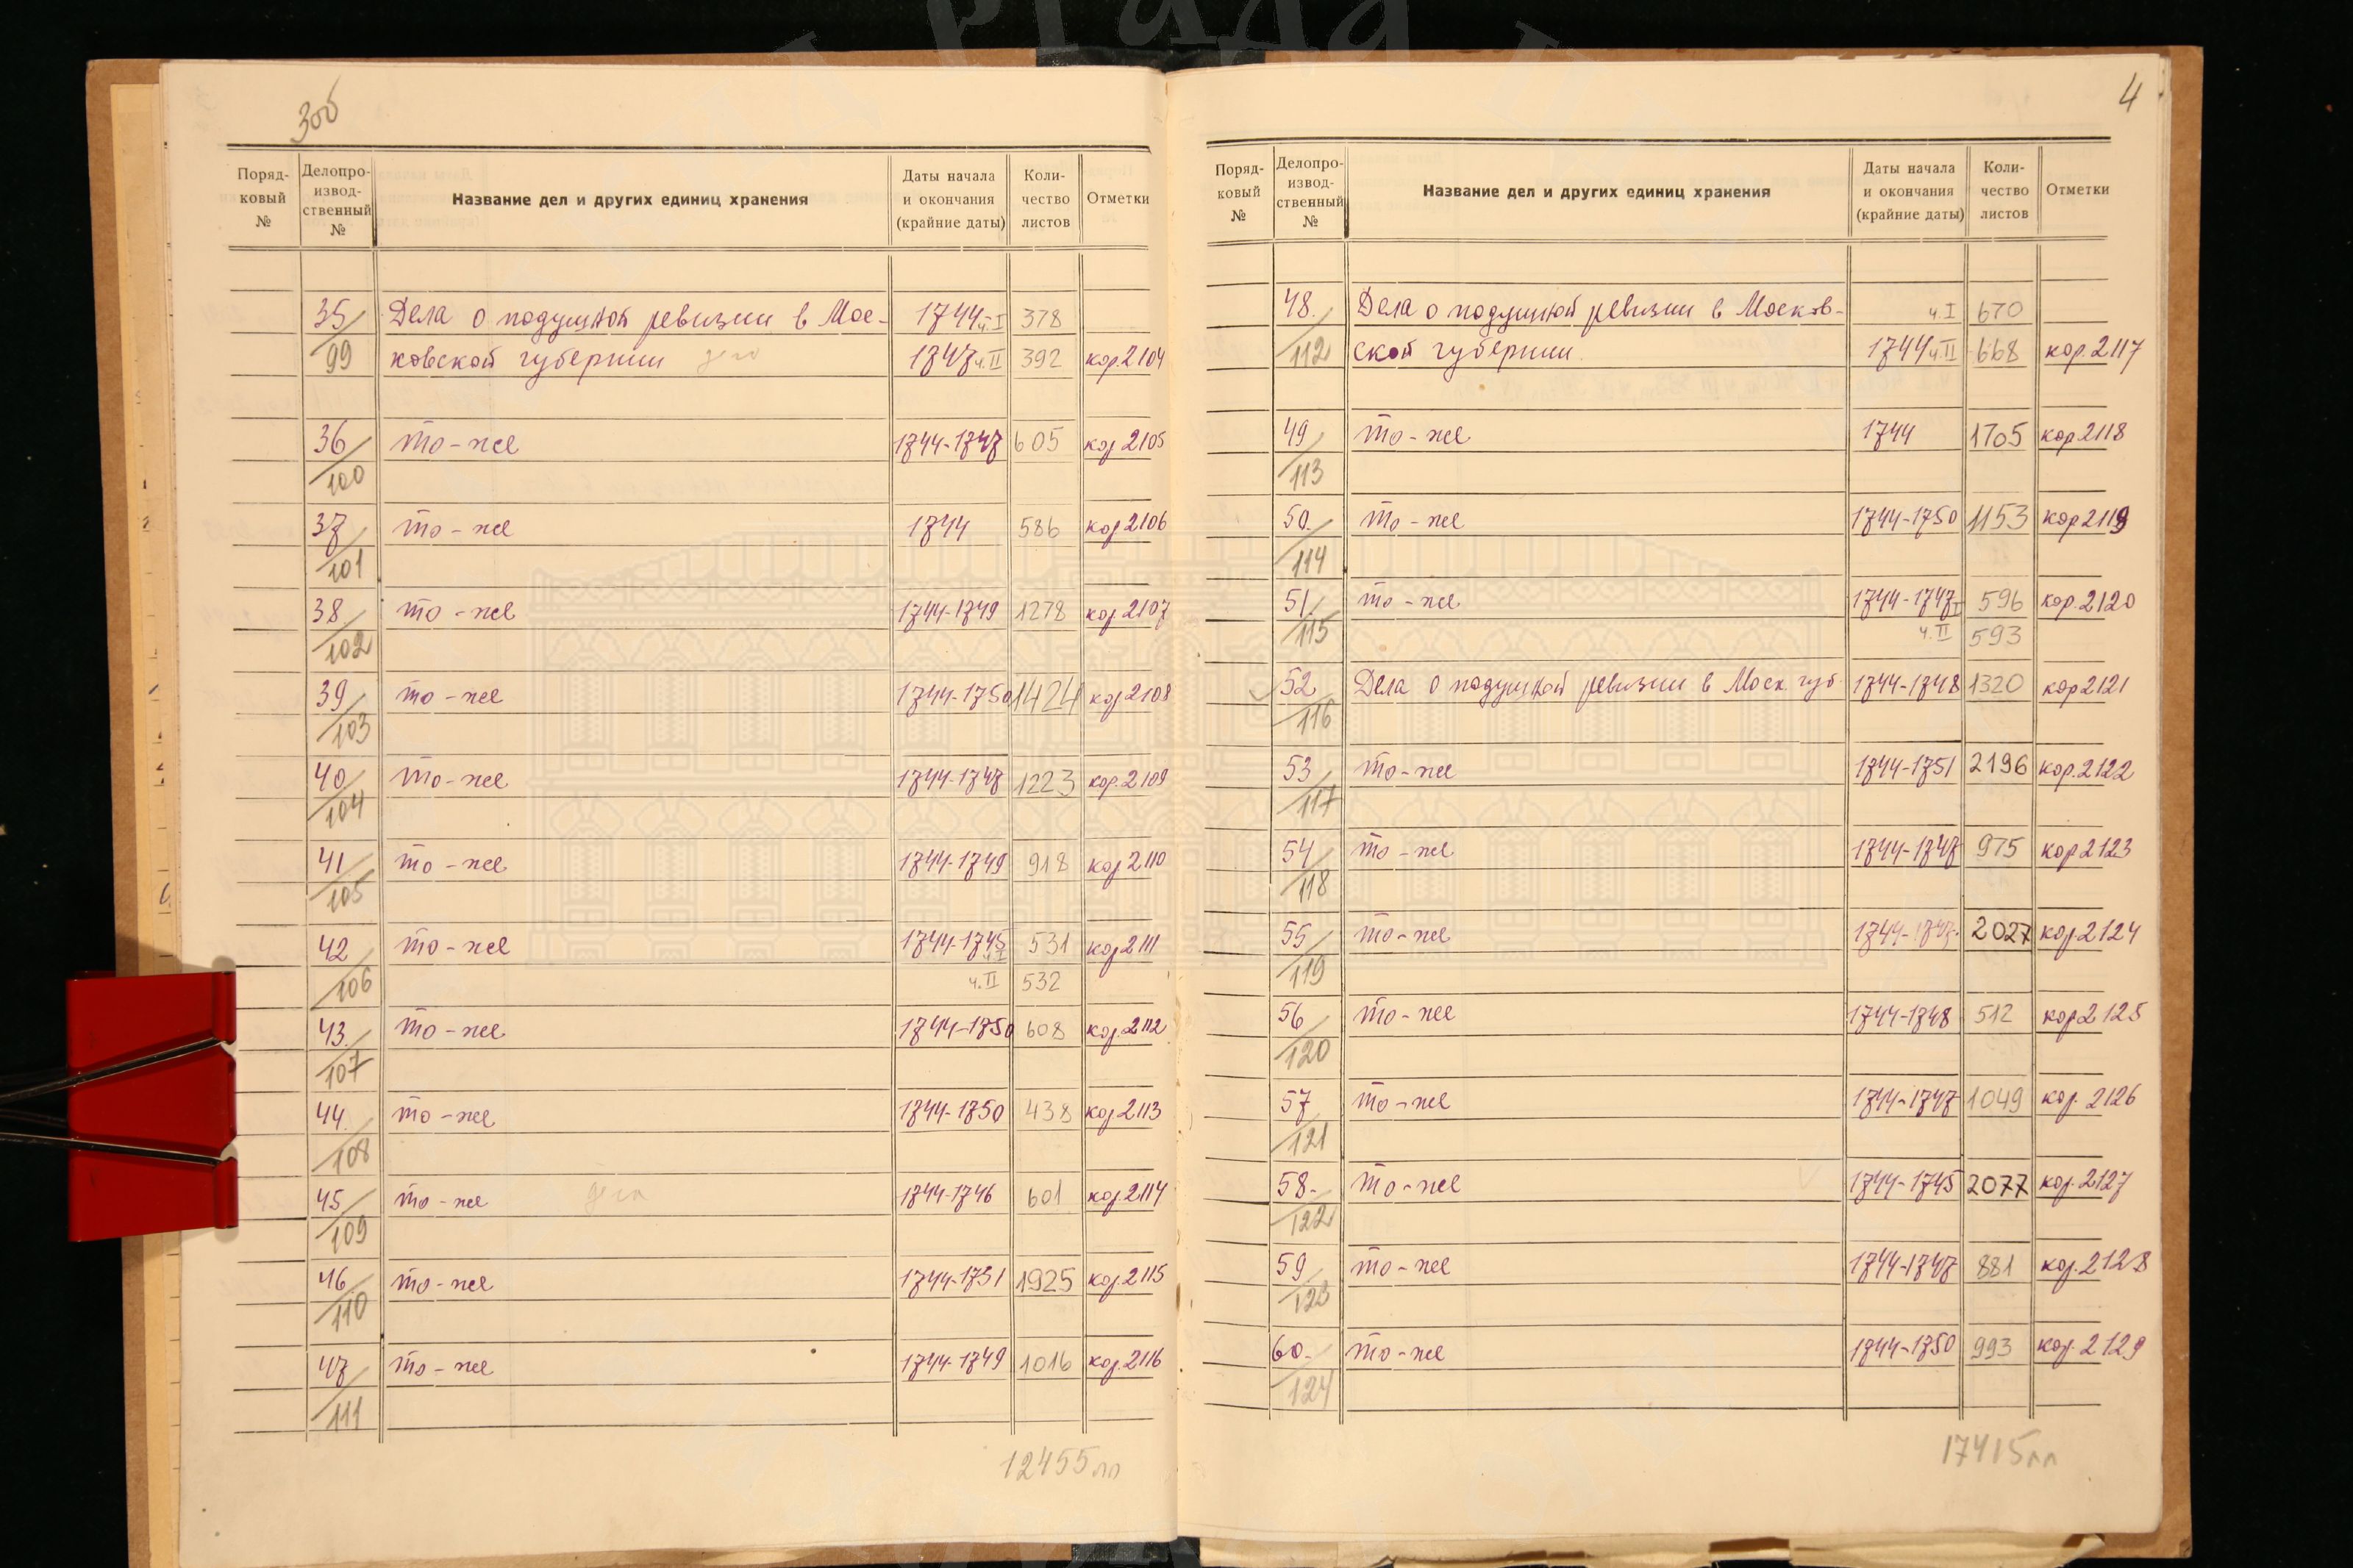 3об
Поряд-
ковый
№
Делопро-
извод-
ственный
№
Название дел и других единиц хранения
Даты начала
и окончания
(крайние даты)
Коли-
чество
листов
Отметки
35 Дела о подушной ревизии в Мос- 1744 ч.I 378
99 ковской губернии 1747 ч.II 392 кор.2104
36 то-же 1744-1747 605 кор 2105
100
37 то-же 1744 586 кор 2106
101
38. то-же 1744-1749 1278 кор.2107
102
39 то-же 1744-1750 1424 кор 2108
103
40 то-же 1744-1747 1223 кор.2109
104
41 то-же 1744-1749 918 кор 2110
105
42 то-же 1744-1745 ч.I 531 кор 2111
106 ч.II 532
43. то-же 1744-1750 608 кор.2112
107
44. то-же 1744-1750 438 кор 2113
108
45 то-же 1744-1746 601 кор.2114
109
46 то-же 1744-1751 1925 кор.2115
110
47 то-же 1744-1749 1016 кор.2116
111
12455 лл
4
Поряд-
ковый
№
Делопро-
извод-
ственный
№
Название дел и других единиц хранения
Даты начала
и окончания
(крайние даты)
Коли-
чество
листов
Отметки
48. Дела о подушной ревизии в Москов- ч.I 670
112 ской губернии. 1744 ч.II 668 кор.2117
49 то-же 1744 1705 кор 2118
113
50. то-же 1744-1750 1153 кор 2119
114
51. то-же 1744-1747 I 596 кор.2120
115 ч.II 593
52 Дела о подушной ревизии в Моск. губ. 1744-1748 1320 кор 2121
116
53 то-же 1744-1751 2196 кор.2122
117
54 то-же 1744-1747 975 кор 2123
118
55 то-же 1744-1747. 2027 кор 2124
119
56 то-же 1744-1748 512 кор 2125
120
57 то-же 1744-1747 1049 кор. 2126
121
58. то-же 1744-1745 2077 кор.2127
122
59 то-же 1744-1747 881 кор.2128
123
60. то-же 1744-1750 993 кор.2129
124
17415 лл